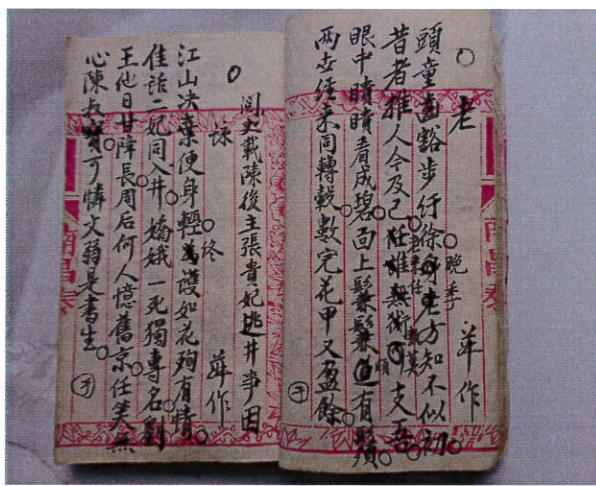 老
頭童齒豁步行徐晚季方知不似初
昔者推人今及己任誰無術可支吾
眼中瞔瞔看成碧面上鬑鬑頤有鬚
两世經來同轉轂數完花甲又盈餘
閱史載陳後主張貴妃逃井事因
詠
江山決棄便身輕終護如花殉有情
佳話二妃同入井嬌娥一死獨專名劉
王他日甘降長周后何人憶舊京任笑無
心陳叔寶可憐文弱是書生